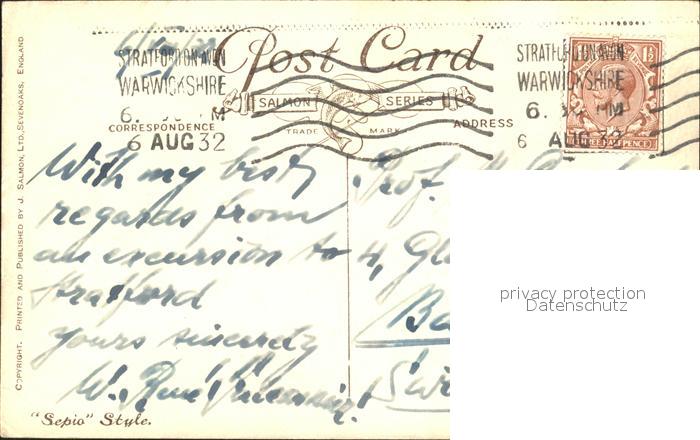 Post Card
STRATFORD ON AVON
WARWICKSHIRE
6. M
6 AUG 32
STRATFORD ON AVON
WARWICKSHIRE
6. PM
6 AUG 32
1½
(THREE HALFPENCE)
SALMON SERIES
TRADE MARK
CORRESPONDENCE
ADDRESS
With my best
regards from
an excursion to
Stratford
yours sincerely
W. René
Prof.
4, Gl
Ba
"Sepio" Style.
COPYRIGHT. PRINTED AND PUBLISHED BY J. SALMON, LTD., SEVENOAKS, ENGLAND
privacy protection
Datenschutz